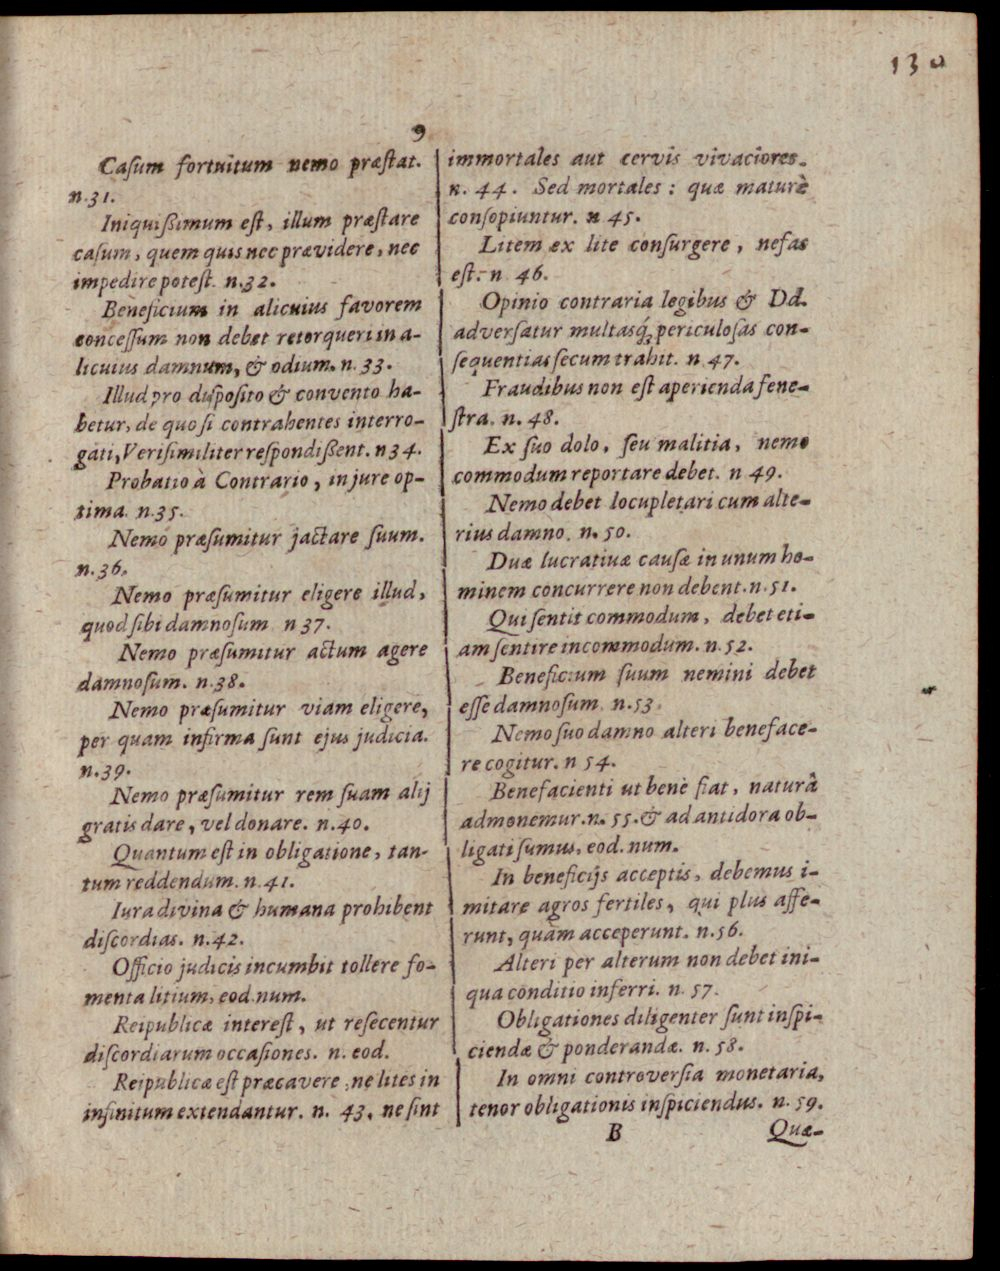 130
9
Caſum fortuitum nemo præſtat.
n.31.
Iniquißimum eſt, illum præſtare
caſum, quem quis nec prævidere, nec
impedire poteſt. n.32.
Beneficium in alicuius favorem
conceſſum non debet retorqueri in a-
licuius damnum, & odium. n.33.
Illud pro diſpoſito & convento ha-
betur, de quo ſi contrahentes interro-
gati, Veriſimiliter reſpondißent. n34.
Probatio à Contrario, in jure op-
tima. n.35.
Nemo præſumitur jactare ſuum.
n.36.
Nemo præſumitur eligere illud,
quod ſibi damnoſum n 37.
Nemo præſumitur actum agere
damnoſum. n.38.
Nemo præſumitur viam eligere,
per quam infirma ſunt ejus judicia.
n.39.
Nemo præſumitur rem ſuam alij
gratis dare, vel donare. n.40.
Quantum eſt in obligatione, tan-
tum reddendum. n.41.
Iura divina & humana prohibent
diſcordias. n.42.
Officio judicis incumbit tollere fo-
menta litium, eod. num.
Reipublicæ intereſt, ut reſecentur
diſcordiarum occaſiones. n. eod.
Reipublicæ eſt præcavere, ne lites in
infinitum extendantur. n. 43. ne ſint
immortales aut cervis vivaciores.
n. 44. Sed mortales: quæ maturè
conſopiuntur. n 45.
Litem ex lite conſurgere, nefas
eſt. n 46.
Opinio contraria legibus & Dd.
adverſatur multasq́ꝫ periculoſas con-
ſequentias ſecum trahit. n 47.
Fraudibus non eſt aperienda fene-
ſtra. n. 48.
Ex ſuo dolo, ſeu malitia, nemo
commodum reportare debet. n 49.
Nemo debet locupletari cum alte-
rius damno. n. 50.
Duæ lucrativæ cauſæ in unum ho-
minem concurrere non debent. n. 51.
Qui ſentit commodum, debet eti-
am ſentire incommodum. n. 52.
Beneficium ſuum nemini debet
eſſe damnoſum. n.53.
Nemo ſuo damno alteri beneface-
re cogitur. n 54.
Benefacienti ut benè fiat, naturâ
admonemur. n. 55. & ad antidora ob-
ligati ſumus, eod. num.
In beneficijs acceptis, debemus i-
mitare agros fertiles, qui plus affe-
runt, quàm acceperunt. n.56.
Alteri per alterum non debet ini-
qua conditio inferri. n. 57.
Obligationes diligenter ſunt inſpi-
ciendæ & ponderandæ. n. 58.
In omni controverſia monetaria,
tenor obligationis inſpiciendus. n. 59.
B Quæ-